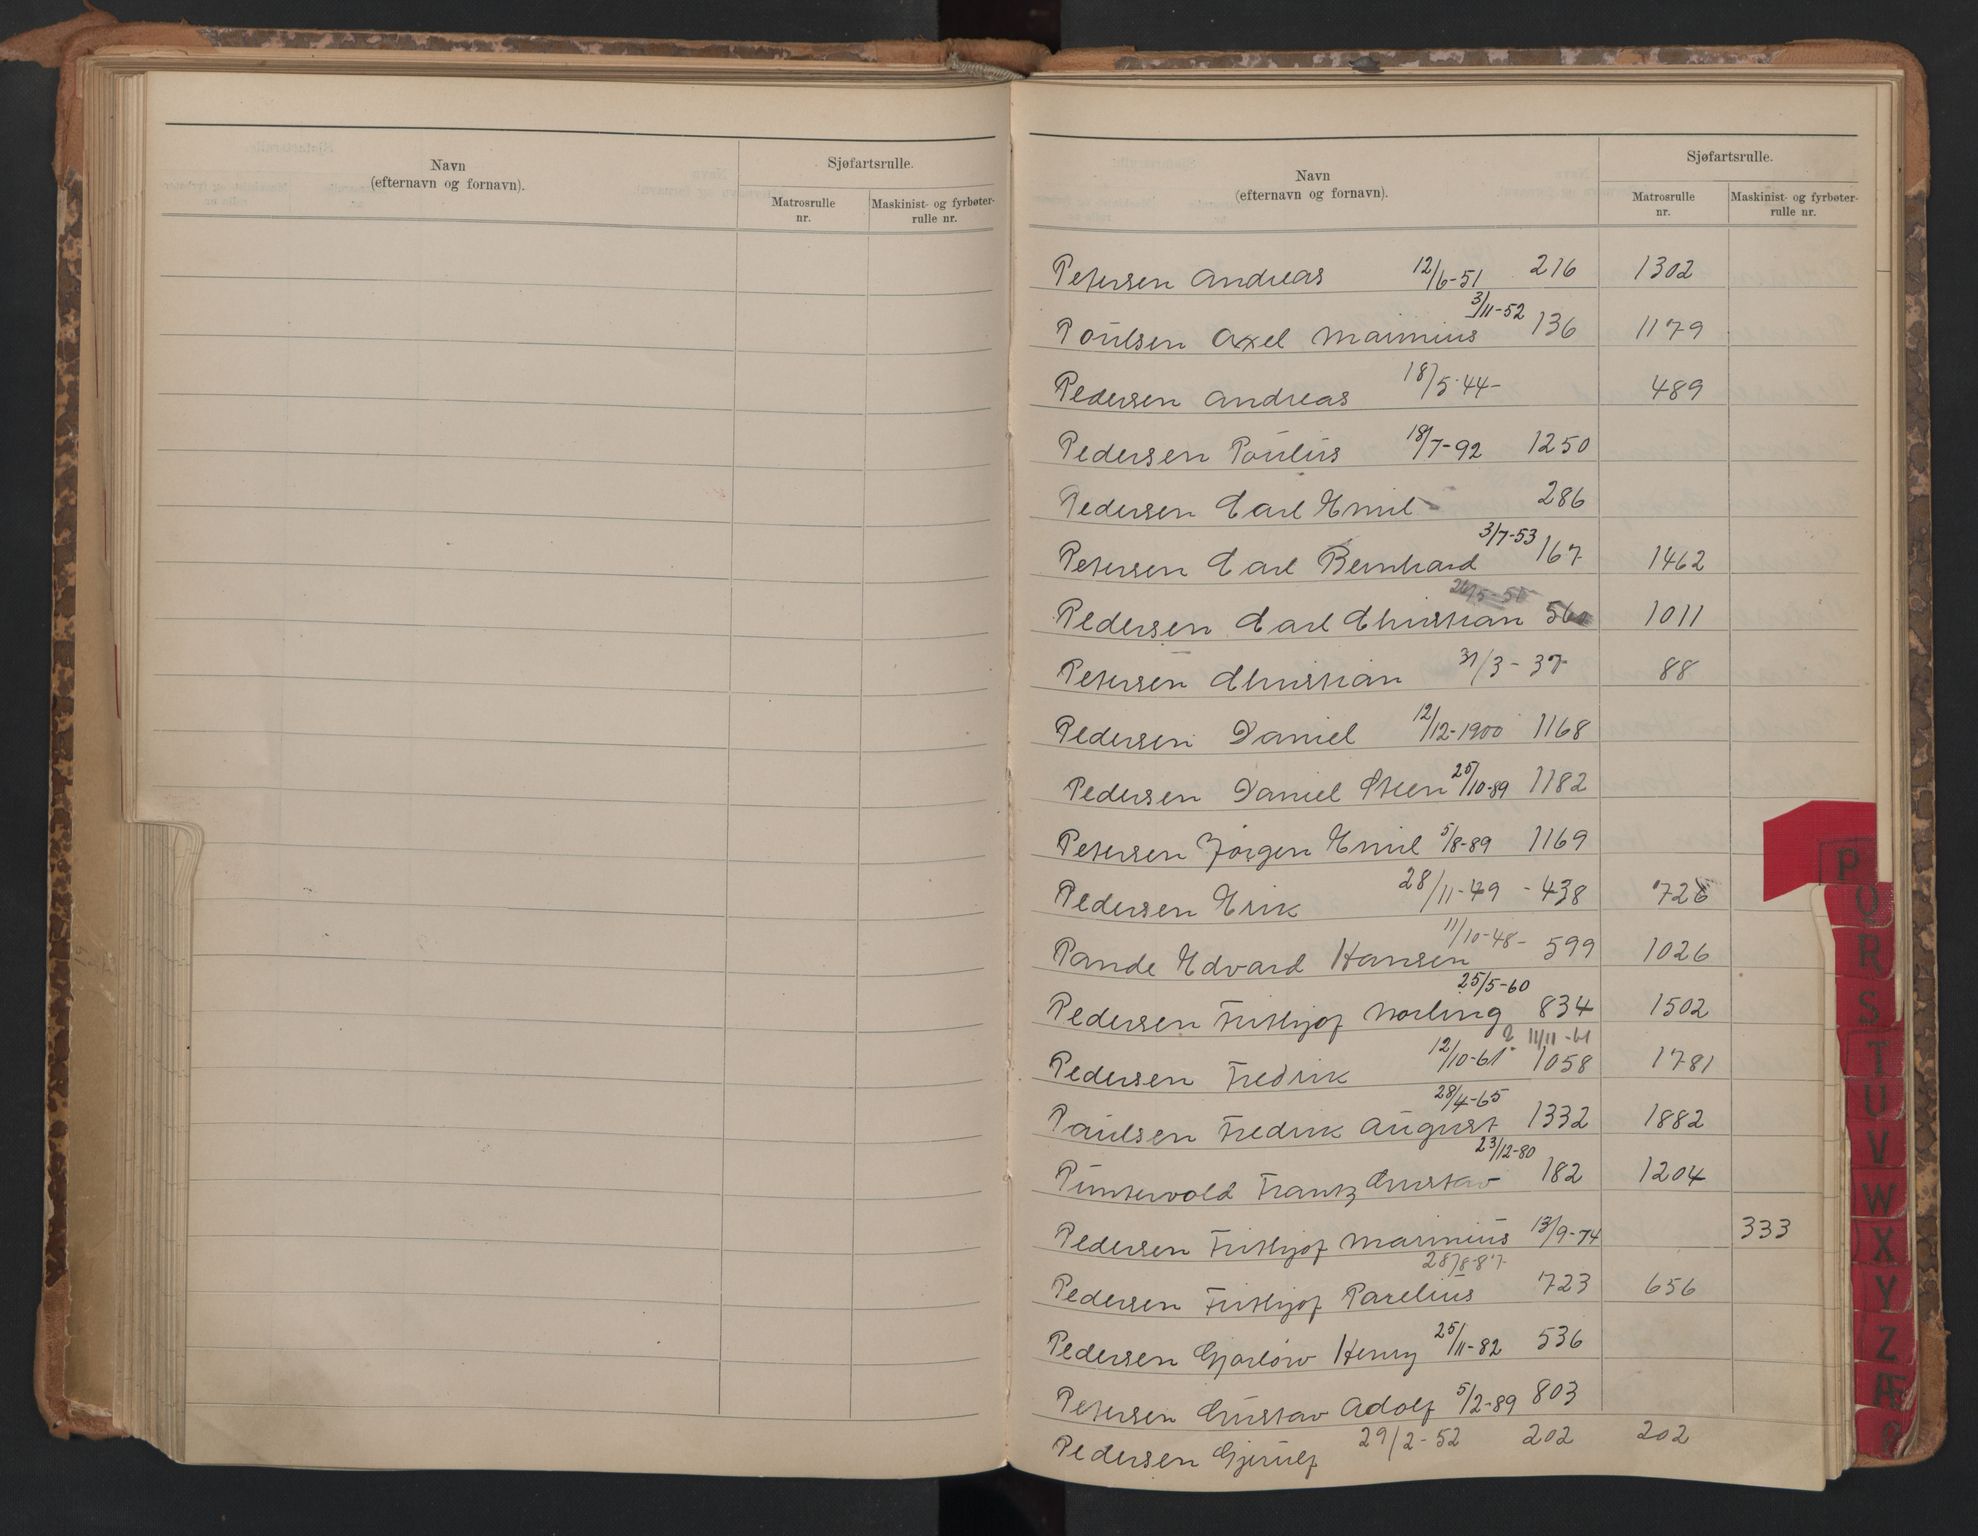 Navn
(efternavn og fornavn).
Sjøfartsrulle.
Matrosrulle
nr.
Maskinist- og fyrbøter-
rulle nr.
Navn
(efternavn og fornavn).
Sjøfartsrulle.
Matrosrulle
nr.
Maskinist- og fyrbøter-
rulle nr.
Petersen Andreas 12/6-51 216 1302
Poulsen Axel Marinius 3/11-52 136 1179
Pedersen Andreas 18/5-44- 489
Pedersen Poulus 18/7-92 1250
Pedersen Carl Emil 286
Petersen Carl Bernhard 3/7-53 167 1462
Pedersen Carl Christian 1011
Petersen Christian 31/3-37 88
Pedersen Daniel 12/12-1900 1168
Pedersen Daniel Steen 25/10-89 1182
Petersen Jörgen Emil 5/8-89 1169
Pedersen Erik 28/11-49 - 438 726
Pande Edvard Hansen 11/10-48- 599 1026
Pedersen Frithjof Norling 25/5-60 834 1502
Pedersen Fredrik 12/10-61 11/11-61 1058 1781
Paulsen Fredrik August 28/4-65 1332 1882
Puntervold Frantz Gustav 23/12-80 182 1204
Pedersen Frithjof Marinius 13/9-74 333
Pedersen Frithjof Parelius 28/8-87 723 656
Pedersen Gjørlow Henry 25/11-82 536
Petersen Gustav Adolf 5/2-89 803
Pedersen Gjerulf 29/2-52 202 202
P
Q
R
S
T
U
V
W
X
Y
Z
Æ
Ø